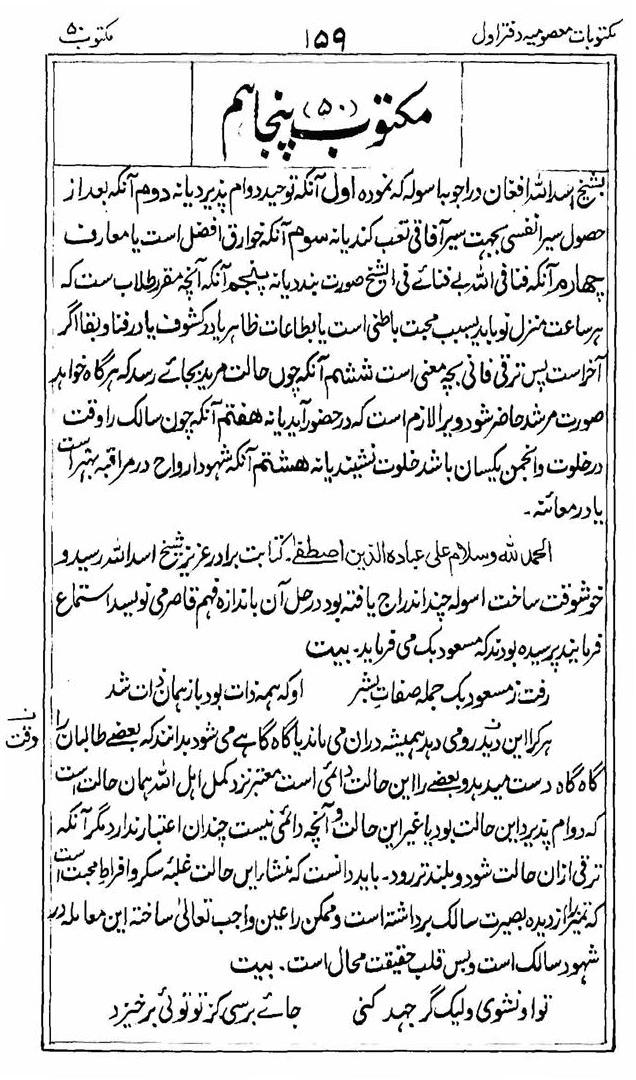 مکتوبات معصومیہ دفتر اول ۱۵۹ مکتوب ۵۰
مکتوب (۵۰) پنجاہم
بشیخ اسد اللہ افغان در اجوبہ اسولہ کہ نمودہ اول آنکہ توحید دوام پذیرد یا نہ دوم آنکہ بعد از
حصول سیر انفسی بجہت سیر آفاقی تعب کند یا نہ سوم آنکہ خوارق افضل است یا معارف
چہارم آنکہ فنا فی اللہ بے فنائے فی الشیخ صورت بندد یا نہ پنجم آنکہ آنچہ مقرر طلاب ست کہ
ہر ساعت منزل نو باید بسبب محبت باطنی است یا بطاعات ظاہر یا در کشوف یا در فنا و بقا اگر
آخر است پس ترقی فانی بچہ معنی است ششم آنکہ چوں حالت مرید بجائے رسد کہ ہر گاہ خواہد
صورت مرشد حاضر شود ویرا لازم است کہ در حضور آید یا نہ ہفتم آنکہ چون سالک را وقت
در خلوت و انجمن یکسان باشد خلوت نشیند یا نہ ہشتم آنکہ شہود ارواح در مراقبہ بہتر است
یا در معائنہ۔
الحمد للہ وسلام علی عبادہ الذین اصطفےٰ۔ کتابت برادر عزیز شیخ اسد اللہ رسید و
خوشوقت ساخت اسولہ چند اندراج یافتہ بود در حل آن باندازہ فہم قاصر می نویسد استماع
فرمایند پرسیدہ بودند کہ مسعود بک می فرماید۔ بیت
رفت ز مسعود بک جملہ صفات بشر او کہ ہمہ ذات بود باز ہمان ذات شد
ہر کرا این دید رومی دہد ہمیشہ دران می ماند یا گاہ گاہے می شود بدانند کہ بعضے طالبان را
ن
وقت
گاہ گاہ دست میدہد و بعضے را این حالت دائمی است معتبر نزد کمل اہل اللہ ہمان حالت است
کہ دوام پذیرد این حالت بود یا غیر این حالت و آنچہ دائمی نیست چندان اعتبار ندارد مگر آنکہ
ترقی ازان حالت شود و بلند تر رود۔ باید دانست کہ منشاء این حالت غلبۂ سکر و افراط محبت است
کہ تمیز را از دیدہ بصیرت سالک برداشتہ است و ممکن را عین واجب تعالیٰ ساختہ این معاملہ در
شہود سالک است و بس قلب حقیقت محال است۔ بیت
تو او نشوی ولیک گر جہد کنی جائے برسی کز تو توئی برخیزد